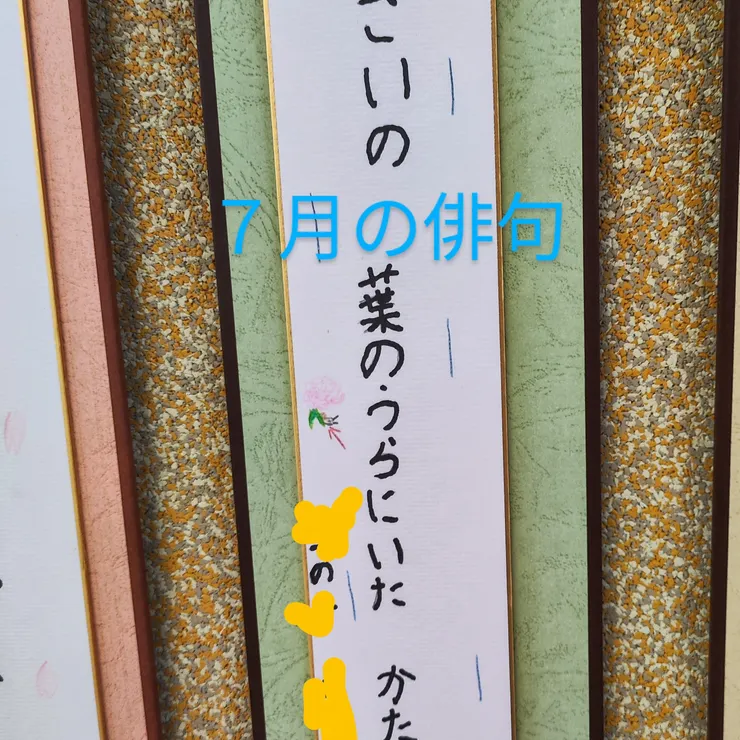 ７月の俳句
いの 葉のうらにいた かた
の